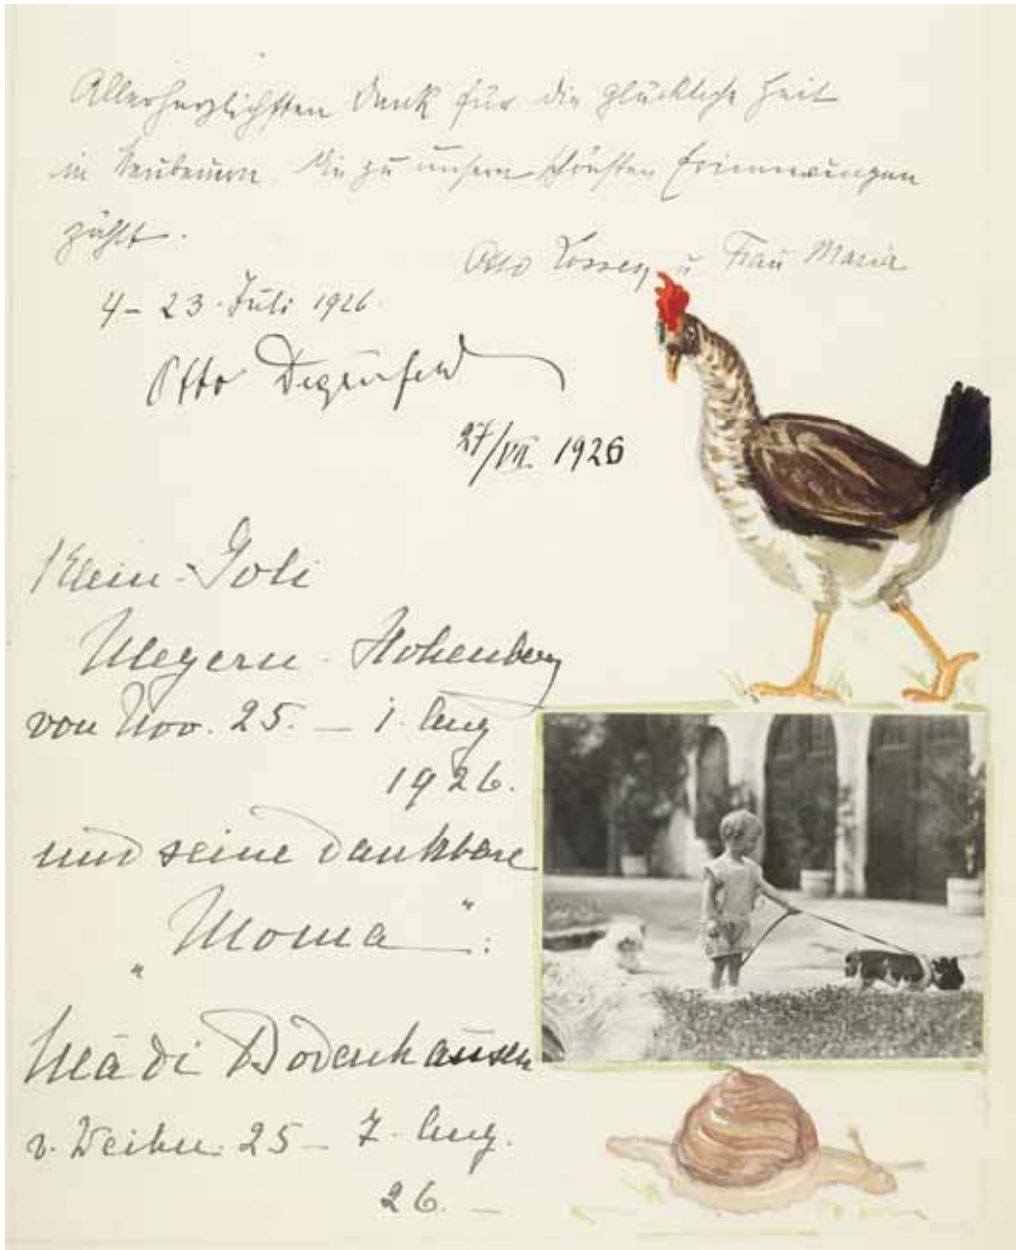 Allerherzlichsten Dank für die glückliche Zeit
in Neubeuern, die zu unsern schönsten Erinnerungen
zählt.
Otto u. Frau Maria
4 – 23. Juli 1926.
Otto Degenfeld
27/VII. 1926
Klein-Goli
Meyern-Hohenberg
von Nov. 25. – 1. Aug
1926.
und seine dankbare
"Moma":
Mädi Bodenhausen
v. Weihn. 25 – 7. Aug.
26. –